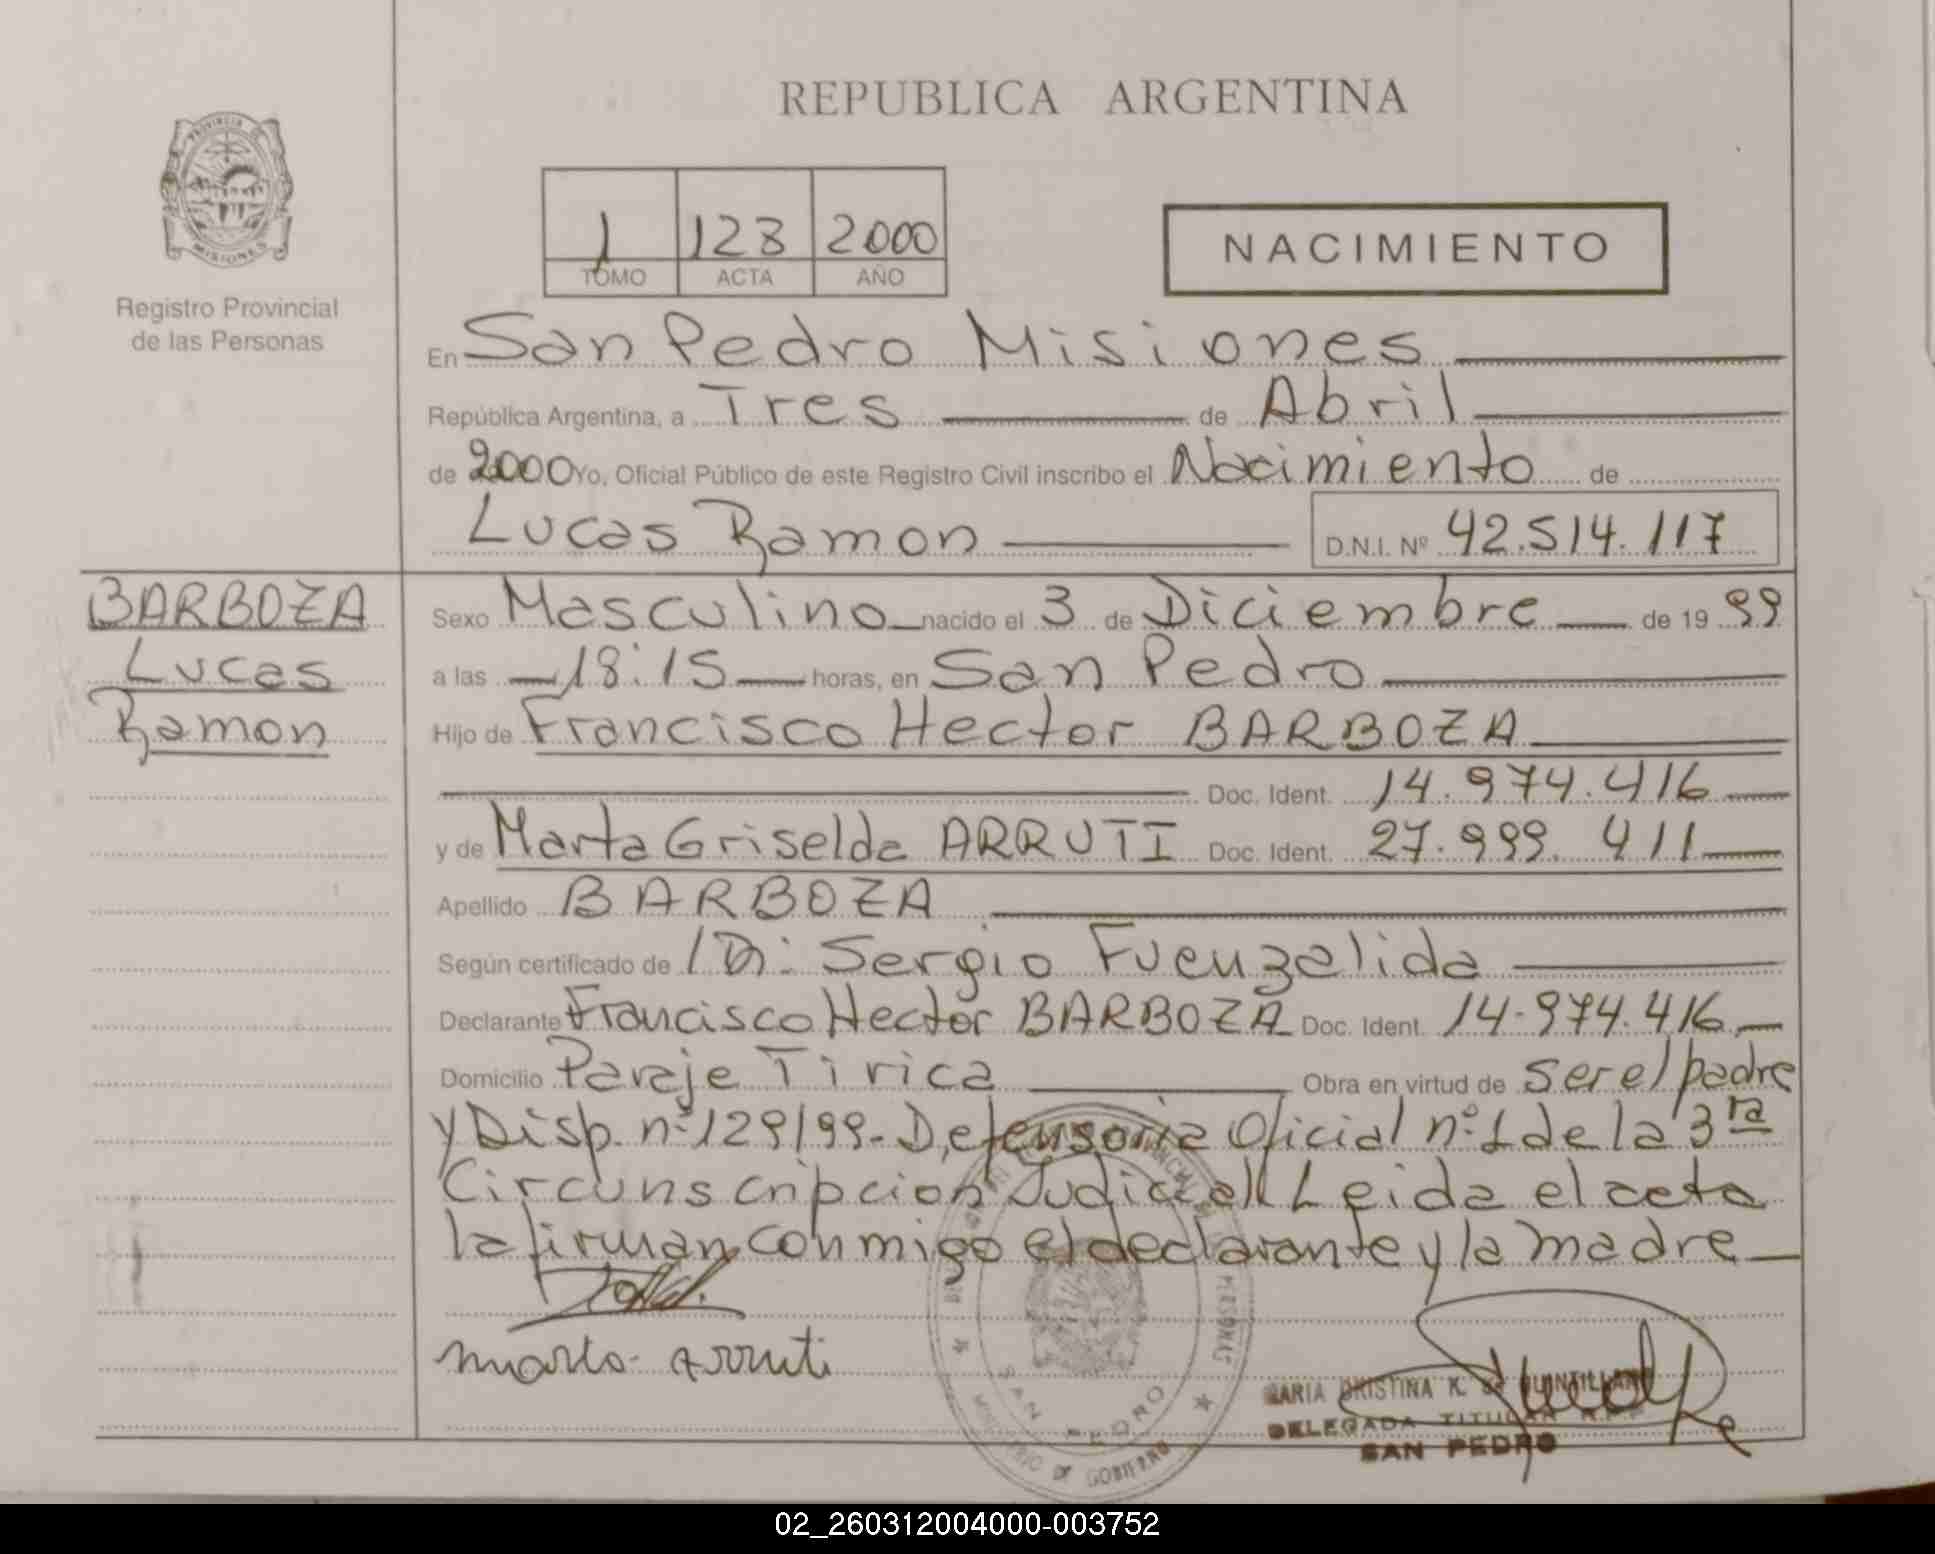 REPUBLICA ARGENTINA
PROVINCIA DE
MISIONES
Registro Provincial
de las Personas
1 123 2000
TOMO ACTA AÑO
NACIMIENTO
En San Pedro Misiones
República Argentina, a Tres de Abril
de 2000 Yo, Oficial Público de este Registro Civil inscribo el Nacimiento de
Lucas Ramon D.N.I. Nº 42.514.117
BARBOZA
Lucas
Ramon
Sexo Masculino nacido el 3 de Diciembre de 19 99
a las 18:15 horas, en San Pedro
Hijo de Francisco Hector BARBOZA
Doc. Ident. 14.974.416
y de Marta Griselda ARRUTI Doc. Ident. 27.999.411
Apellido BARBOZA
Según certificado de Sergio Fuenzalida
Declarante Francisco Hector BARBOZA Doc. Ident. 14.974.416
Domicilio Paraje Tirica Obra en virtud de ser el padre
y Disp. nº 129/99. Defensoria Oficial nº 1 de la 3ra
Circunscripcion Judicial Leida el acta
la firman conmigo el declarante y la madre
marta arruti
SAN PEDRO
MINISTERIO DE GOBIERNO
PERSONAS
MARIA CRISTINA K. DE QUINTILLAN
DELEGADA TITULAR R.P.P.
SAN PEDRO
02_260312004000-003752